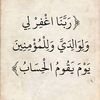 ﴿رَبَّنَا اغْفِرْ لِي
وَلِوَالِدَيَّ وَلِلْمُؤْمِنِينَ
يَوْمَ يَقُومُ الْحِسَابُ﴾